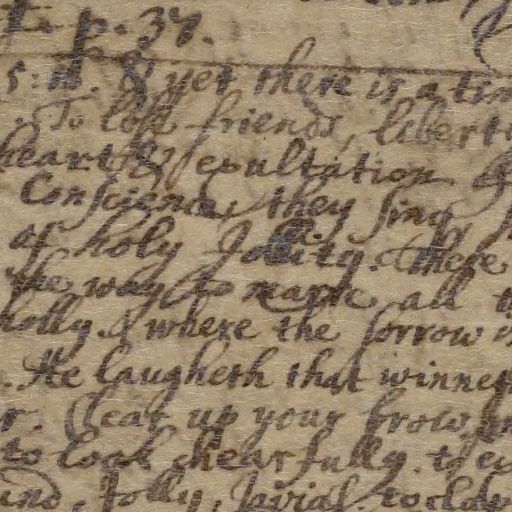 p. 37.
& yet there is a tim
To lose friends, libert
heart & exultation
Conscience, they sing
of holy Jolity. These
the way to reape all
holly. & where the sorrow is
He laugheth that winneth
r. Clear up your brow
to look chearfully. to
Jolly, Jovial. to